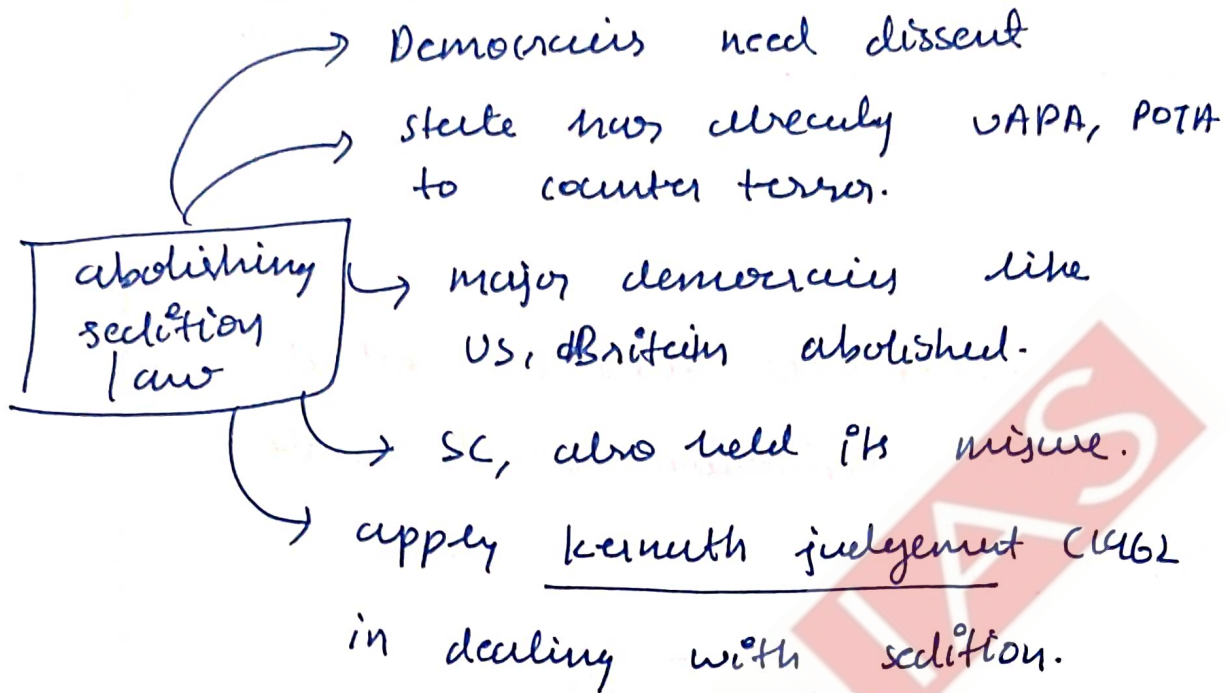 Democracies need dissent
state has already UAPA, POTA
to counter terror.
abolishing
sedition
law
major democracies like
US, Britain abolished.
SC, also held its misuse.
apply kernath judgement (1962
in dealing with sedition.
IAS